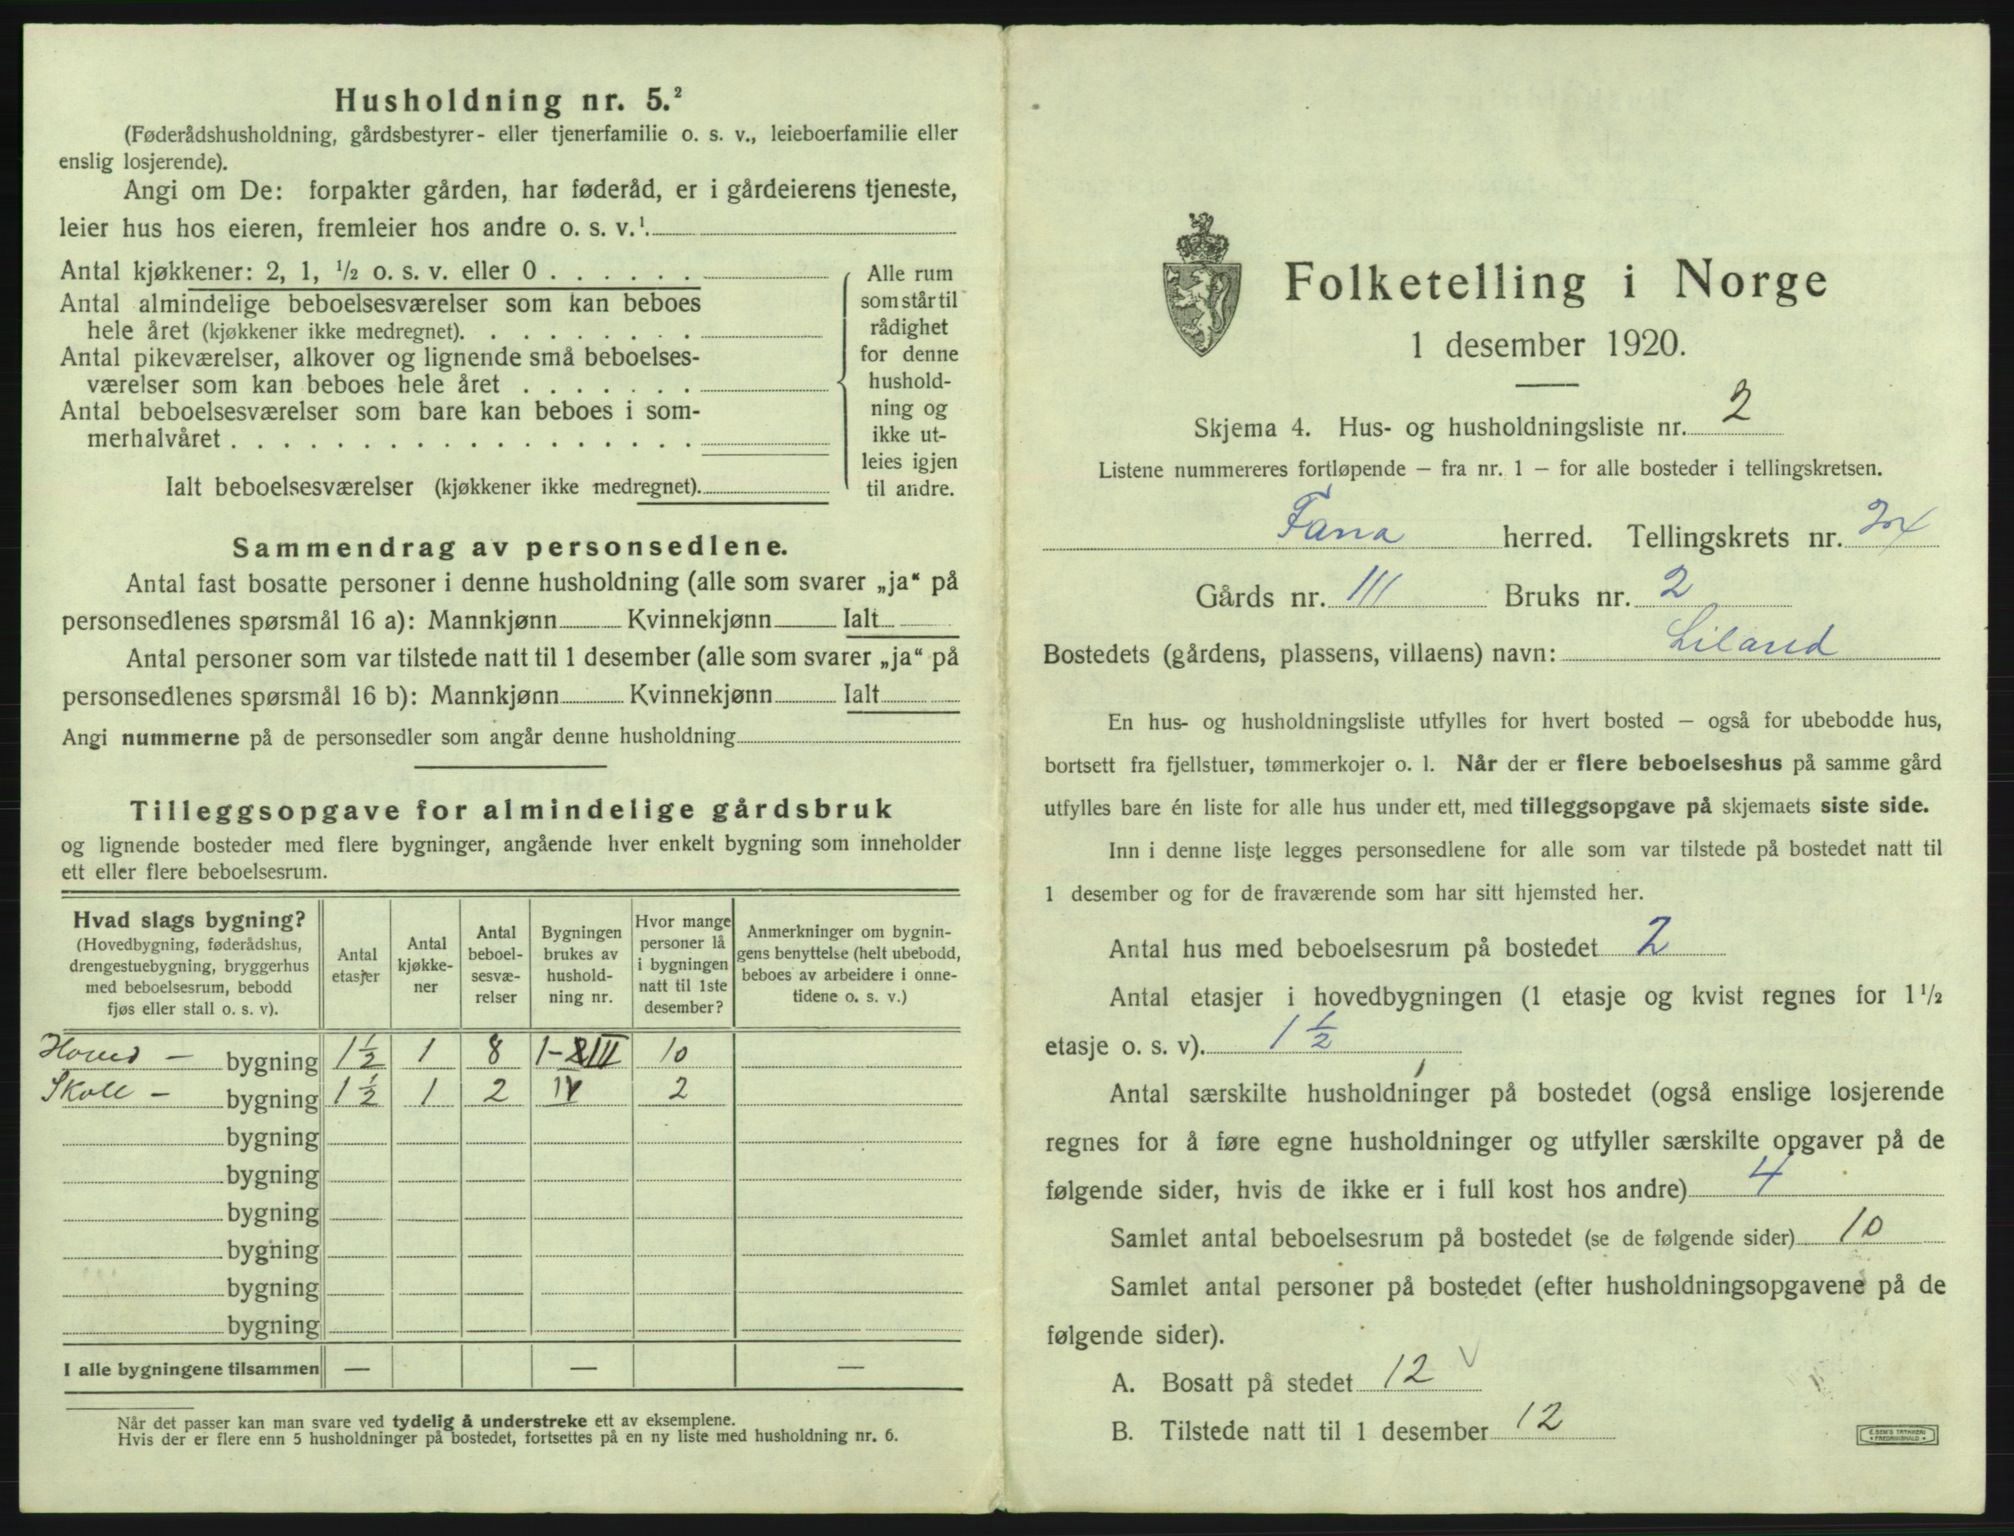 Husholdning nr. 5.²
(Føderådshusholdning, gårdsbestyrer- eller tjenerfamilie o. s. v., leieboerfamilie eller
enslig losjerende).
Angi om De: forpakter gården, har føderåd, er i gårdeierens tjeneste,
leier hus hos eieren, fremleier hos andre o. s. v.¹.
Antal kjøkkener: 2, 1, ½ o. s. v. eller 0 . . . . . .
Antal almindelige beboelsesværelser som kan beboes
hele året (kjøkkener ikke medregnet). . . . . . . . .
Antal pikeværelser, alkover og lignende små beboelses-
værelser som kan beboes hele året . . . . . . .
Antal beboelsesværelser som bare kan beboes i som-
merhalvåret . . . . . . . . . . . . . . . . . .
Ialt beboelsesværelser (kjøkkener ikke medregnet).
Alle rum
som står til
rådighet
for denne
hushold-
ning og
ikke ut-
leies igjen
til andre.
Sammendrag av personsedlene.
Antal fast bosatte personer i denne husholdning (alle som svarer „ja“ på
personsedlenes spørsmål 16 a): Mannkjønn Kvinnekjønn Ialt
Antal personer som var tilstede natt til 1 desember (alle som svarer „ja“ på
personsedlenes spørsmål 16 b): Mannkjønn Kvinnekjønn Ialt
Angi nummerne på de personsedler som angår denne husholdning
Tilleggsopgave for almindelige gårdsbruk
og lignende bosteder med flere bygninger, angående hver enkelt bygning som inneholder
ett eller flere beboelsesrum.
Hvad slags bygning?
(Hovedbygning, føderådshus,
drengestuebygning, bryggerhus
med beboelsesrum, bebodd
fjøs eller stall o. s. v).
Antal
etasjer
Antal
kjøkke-
ner
Antal
beboel-
sesvæ-
relser
Bygningen
brukes av
hushold-
ning nr.
Hvor mange
personer lå
i bygningen
natt til 1ste
desember?
Anmerkninger om bygnin-
gens benyttelse (helt ubebodd,
beboes av arbeidere i onne-
tidene o. s. v.)
Hoved - bygning 1½ 1 8 1-III 10
Skole - bygning 1½ 1 2 IV 2
bygning
bygning
bygning
bygning
bygning
bygning
I alle bygningene tilsammen — — —
Når det passer kan man svare ved tydelig å understreke ett av eksemplene.
Hvis der er flere enn 5 husholdninger på bostedet, fortsettes på en ny liste med husholdning nr. 6.
Folketelling i Norge
1 desember 1920.
Skjema 4. Hus- og husholdningsliste nr. 2
Listene nummereres fortløpende — fra nr. 1 — for alle bosteder i tellingskretsen.
Fana herred. Tellingskrets nr.
Gårds nr. 111 Bruks nr. 2
Bostedets (gårdens, plassens, villaens) navn: Liland
En hus- og husholdningsliste utfylles for hvert bosted — også for ubebodde hus,
bortsett fra fjellstuer, tømmerkojer o. l. Når der er flere beboelseshus på samme gård
utfylles bare én liste for alle hus under ett, med tilleggsopgave på skjemaets siste side.
Inn i denne liste legges personsedlene for alle som var tilstede på bostedet natt til
1 desember og for de fraværende som har sitt hjemsted her.
Antal hus med beboelsesrum på bostedet 2
Antal etasjer i hovedbygningen (1 etasje og kvist regnes for 1½
etasje o. s. v). 1½
Antal særskilte husholdninger på bostedet (også enslige losjerende
regnes for å føre egne husholdninger og utfyller særskilte opgaver på de
følgende sider, hvis de ikke er i full kost hos andre) 4
Samlet antal beboelsesrum på bostedet (se de følgende sider) 10
Samlet antal personer på bostedet (efter husholdningsopgavene på de
følgende sider).
A. Bosatt på stedet 12 V
B. Tilstede natt til 1 desember 12
E. SEM'S TRYKKERI
FREDRIKSHALD